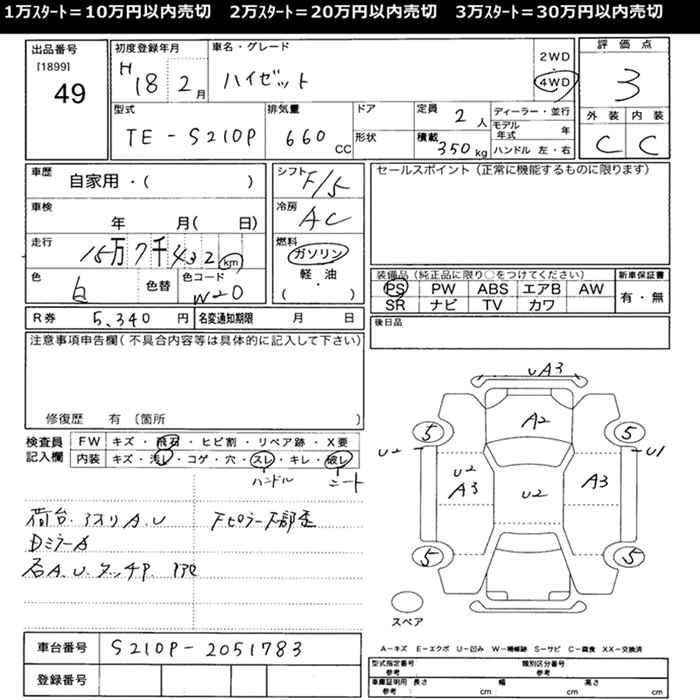 1万ｽﾀｰﾄ＝10万円以内売切　2万ｽﾀｰﾄ＝20万円以内売切　3万ｽﾀｰﾄ＝30万円以内売切
出品番号
[1899]
49
初度登録年月
H 18 2月
車名・グレード
ハイゼット
2WD
4WD
評価点
3
型式
TE-S210P
排気量
660 CC
ドア
形状
定員 2 人
積載 350 kg
ディーラー・並行
モデル年式 年
ハンドル 左・右
外装 内装
C C
車歴
自家用・( )
シフト F/5
セールスポイント（正常に機能するものに限ります）
車検
年 月( 日)
冷房 AC
走行
15万7千432 km
燃料
ガソリン
軽・油
( )
色 白
色替
色コード W20
装備品（純正品に限り○をつけてください）
新車保証書
PS PW ABS エアB AW
SR ナビ TV カワ
有・無
R券 5,340 円
名変通知期限 月 日
後日品
注意事項申告欄(不具合内容等は具体的に記入して下さい)
修復歴 有（箇所 ）
検査員記入欄
FW キズ・飛石・ヒビ割・リペア跡・X要
内装 キズ・汚レ・コゲ・穴・スレ・キレ・破レ
ハンドル シート
荷台.アオリA.U Fピラー下部歪
DミラーA
右A.U.タッチP.
UA3
5 A2 5
U2 U1
U2
A3 U2 A3
5 5
スペア
A－キズ E－エクボ U－凹み W－補修跡 S－サビ C－腐食 XX－交換済
車台番号 S210P-2051783
登録番号
型式指定番号 参考
類別区分番号 参考
車庫証明用 参考
長さ cm 幅 cm 高さ cm